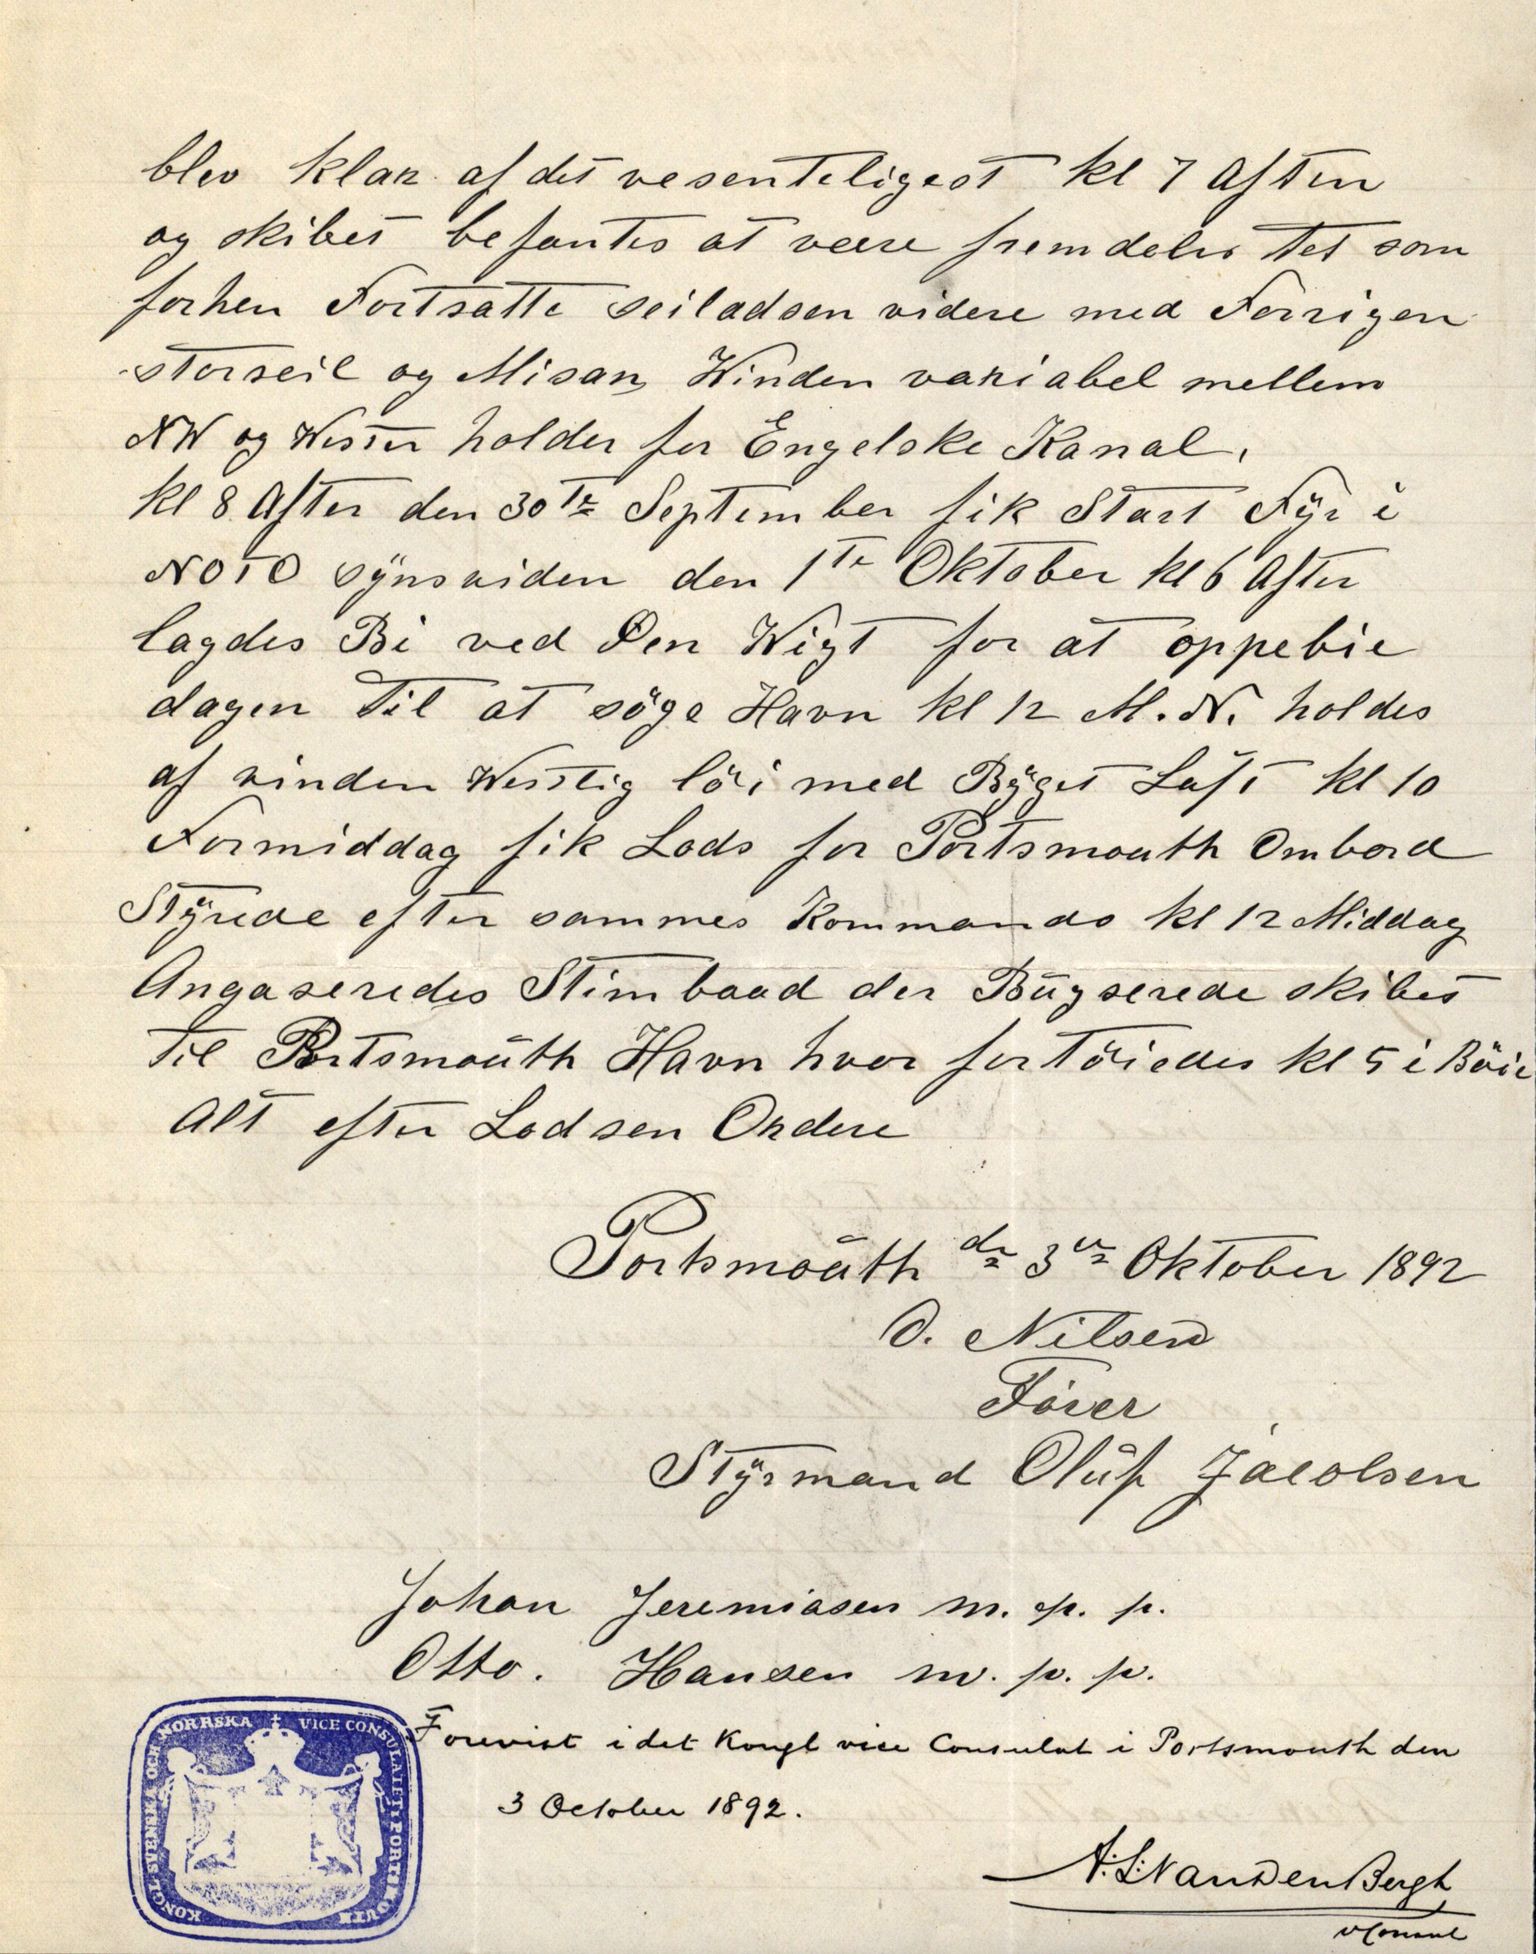 blev klar af det vesenteligest kl 7 Aften
og skibet befantes at være fremdeles tet som
forhen Fortsatte seiladsen videre med Forrigen
storseil og Misan, Winden variabel mellem
NW og Wester holder for Engelske Kanal,
kl 8 After den 30te September fik Start Fÿr i
NOTO sÿnsviden den 1te Oktober kl 6 After
lagdes Bi ved Øen Wigt for at oppebie
dagen til at söge Havn kl 12 M.N. holdes
af vinden Westlig löi med Bÿget Luft kl 10
Formiddag fik Lods for Portsmouth Ombord
Stÿrede efter sammes Kommando kl 12 Middag
Angaseredes Stimbaad der Bügserede skibet
til Portsmoüth Havn hvor fortöiedes kl 5 i Böie
Alt efter Lodsen Ordere
Portsmoüth dn 3en Oktober 1892
O. Nilsen
Förer
Stÿrmand Olüf Jacobsen
Johan Jeremiasen m. p. p.
Otto. Hansen m. p. p.
Forevist i det Kongl vice Consulat i Portsmouth den
3 October 1892.
A. L. Van Den Bergh
v Consul
KONGL. SVENSKA OCH NORRSKA VICE CONSULATET I PORTSMOUTH